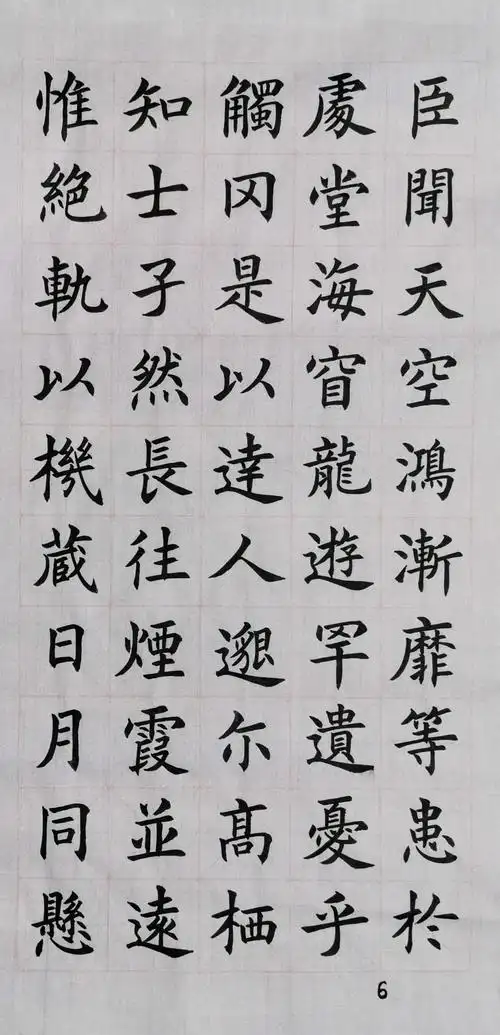 臣聞天空鴻漸靡等患於
處堂海窅龍遊罕遺憂乎
觸冈是以達人邈尒高栖
知士子然長往煙霞並遠
惟絕軌以機蔵日月同懸
6